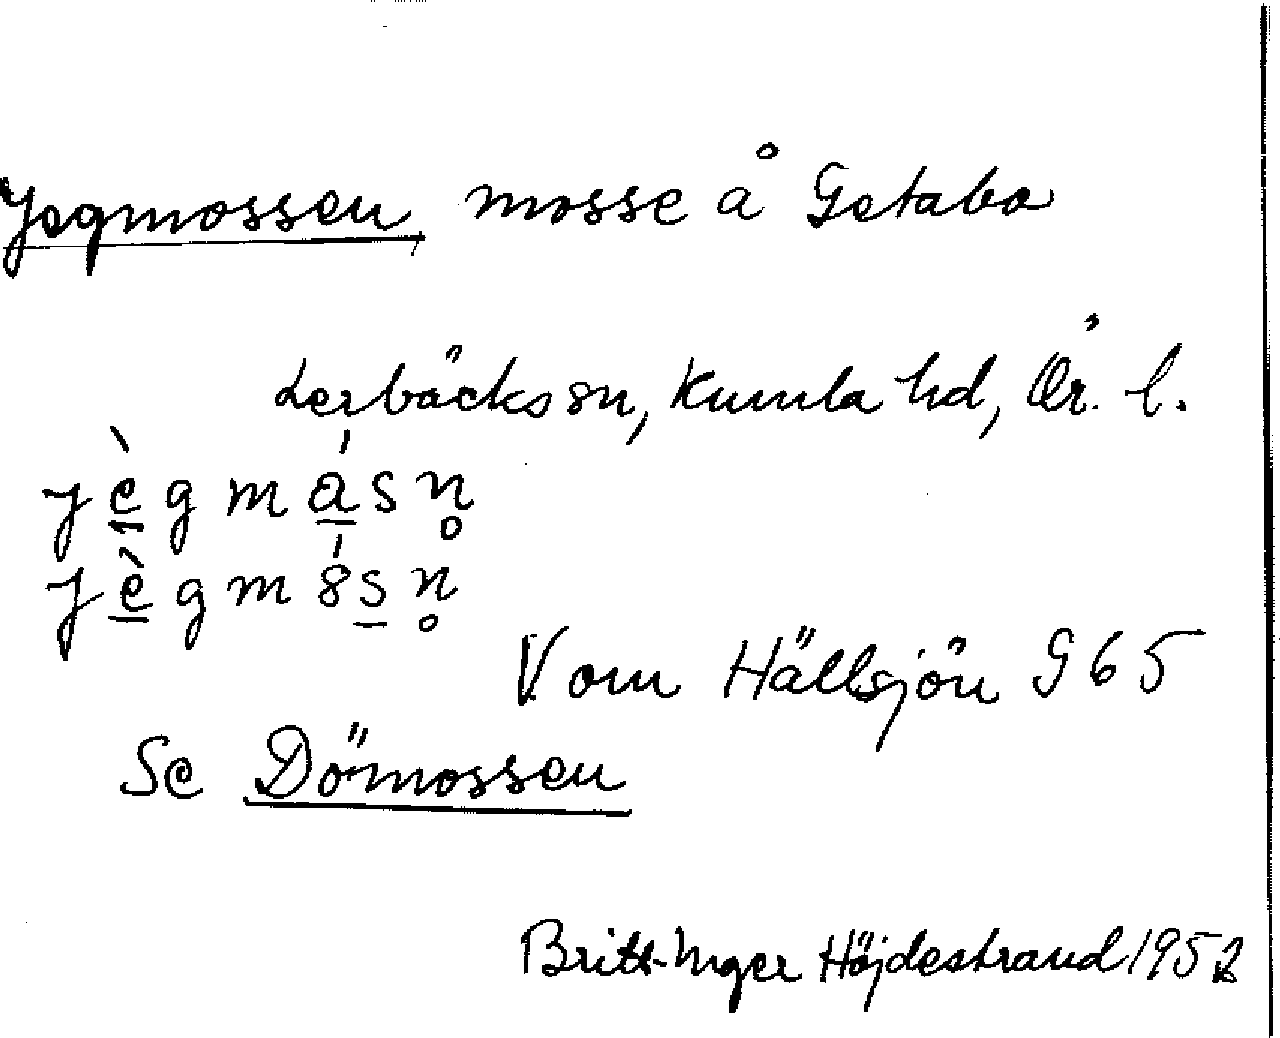 Jegmossen, mosse å Getabo
Lerbäcks sn, Kumla hd, Ör. l.
jè̱gmá̱sn̥
jè̱gmós̱n̥
V om Hällsjön G65
Se Dömossen
Britt-Inger Höjdestrand 1952